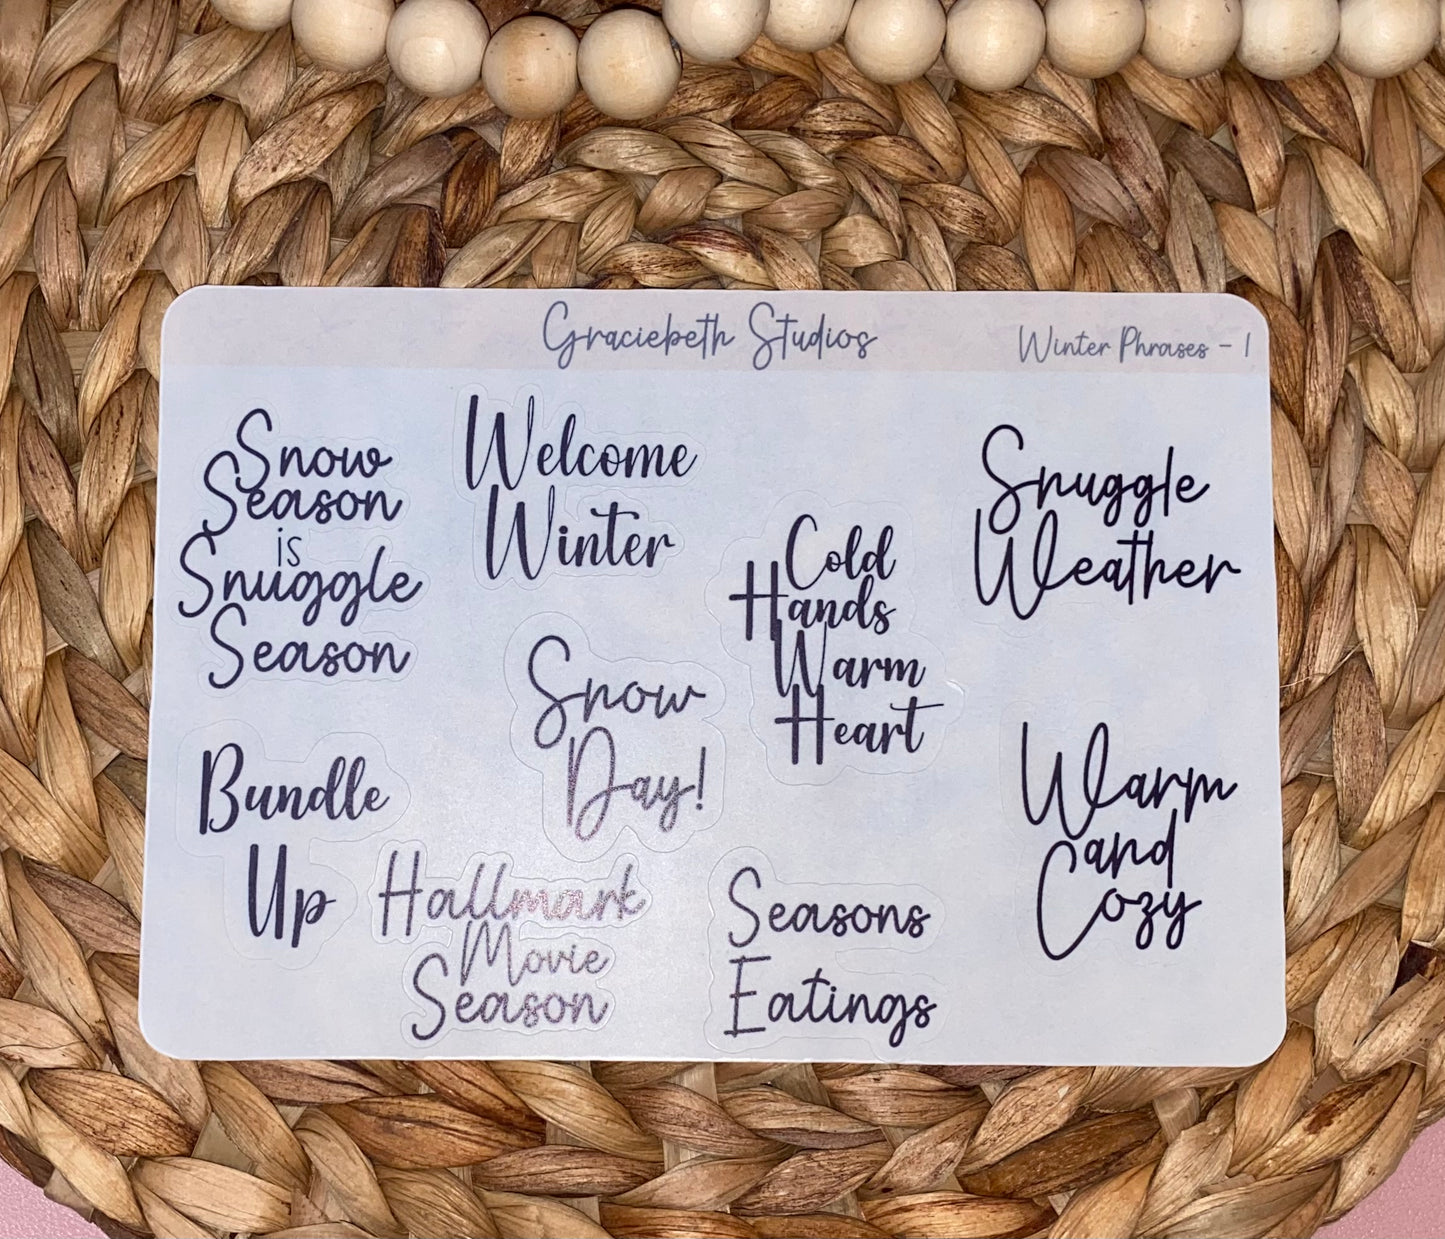 Graciebeth Studios
Winter Phrases - 1
Snow
Season
is
Snuggle
Season
Welcome
Winter
Cold
Hands
Warm
Heart
Snuggle
Weather
Snow
Day!
Bundle
Up
Hallmark
Movie
Season
Seasons
Eatings
Warm
and
Cozy